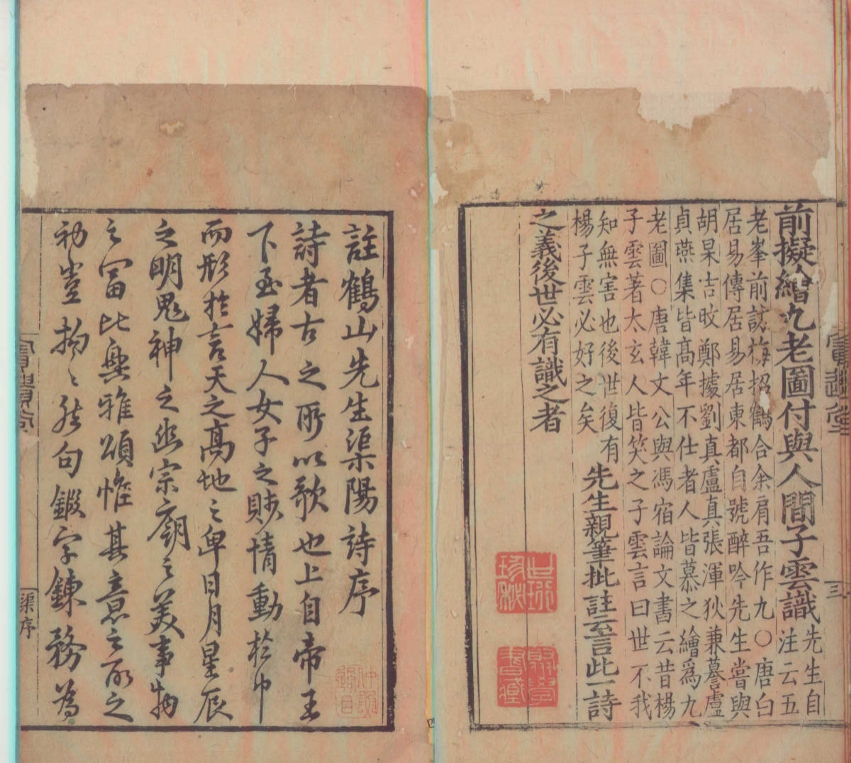 前擬繪九老圖付與人間子雲識先生自注云五
老峯前訪梅招鶴合余肩吾作九〇唐白
居易傳居易居東都自號醉吟先生嘗與
胡杲吉旼鄭據劉真盧真張渾狄兼謩盧
貞燕集皆高年不仕者人皆慕之繪爲九
老圖〇唐韓文公與馮宿論文書云昔楊
子雲著太玄人皆笑之子雲言曰世不我
知無害也後世復有
楊子雲必好之矣
先生親筆批註云至言此一詩
之義後世必有識之者
三
註鶴山先生渠陽詩序
詩者古之所以歌也上自帝王
下至婦人女子之賤情動於中
而形於言天之高地之卑日月星辰
之明鬼神之幽宗廟之美事物
之富比興雅頌惟其意之所之
初豈拘拘然句鍛字鍊務為
渠序